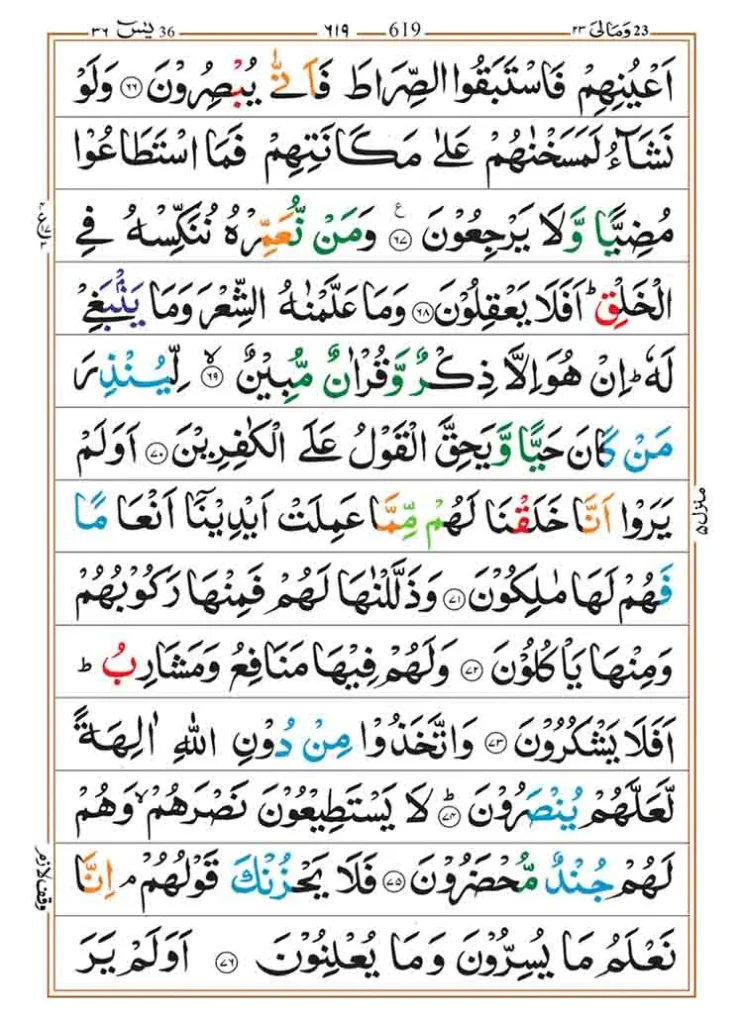 36 يٰسٓ ٣٦ ٦١٩ 619 23 وَمَالِىَ ٢٣
اَعْيُنِهِمْ فَاسْتَبَقُوا الصِّرَاطَ فَاَنّٰى يُبْصِرُوْنَ ۝٦٦ وَلَوْ
نَشَآءُ لَمَسَخْنٰهُمْ عَلٰى مَكَانَتِهِمْ فَمَا اسْتَطَاعُوْا
مُضِيًّا وَّلَا يَرْجِعُوْنَ ۝٦٧ ع وَمَنْ نُّعَمِّرْهُ نُنَكِّسْهُ فِى
الْخَلْقِ ؕ اَفَلَا يَعْقِلُوْنَ ۝٦٨ وَمَا عَلَّمْنٰهُ الشِّعْرَ وَمَا يَنْۢبَغِىْ
لَهٗ ؕ اِنْ هُوَ اِلَّا ذِكْرٌ وَّقُرْاٰنٌ مُّبِيْنٌ ۝٦٩ ۙ لِّيُنْذِرَ
مَنْ كَانَ حَيًّا وَّيَحِقَّ الْقَوْلُ عَلَى الْكٰفِرِيْنَ ۝٧٠ اَوَلَمْ
يَرَوْا اَنَّا خَلَقْنَا لَهُمْ مِّمَّا عَمِلَتْ اَيْدِيْنَاۤ اَنْعَامًا
منزل ۵
فَهُمْ لَهَا مٰلِكُوْنَ ۝٧١ وَذَلَّلْنٰهَا لَهُمْ فَمِنْهَا رَكُوْبُهُمْ
وَمِنْهَا يَاْكُلُوْنَ ۝٧٢ وَلَهُمْ فِيْهَا مَنَافِعُ وَمَشَارِبُ ؕ
اَفَلَا يَشْكُرُوْنَ ۝٧٣ وَاتَّخَذُوْا مِنْ دُوْنِ اللّٰهِ اٰلِهَةً
لَّعَلَّهُمْ يُنْصَرُوْنَ ۝٧٤ ؕ لَا يَسْتَطِيْعُوْنَ نَصْرَهُمْ ۙ وَهُمْ
لَهُمْ جُنْدٌ مُّحْضَرُوْنَ ۝٧٥ فَلَا يَحْزُنْكَ قَوْلُهُمْ ۘ اِنَّا
وقف لازم
نَعْلَمُ مَا يُسِرُّوْنَ وَمَا يُعْلِنُوْنَ ۝٧٦ اَوَلَمْ يَرَ